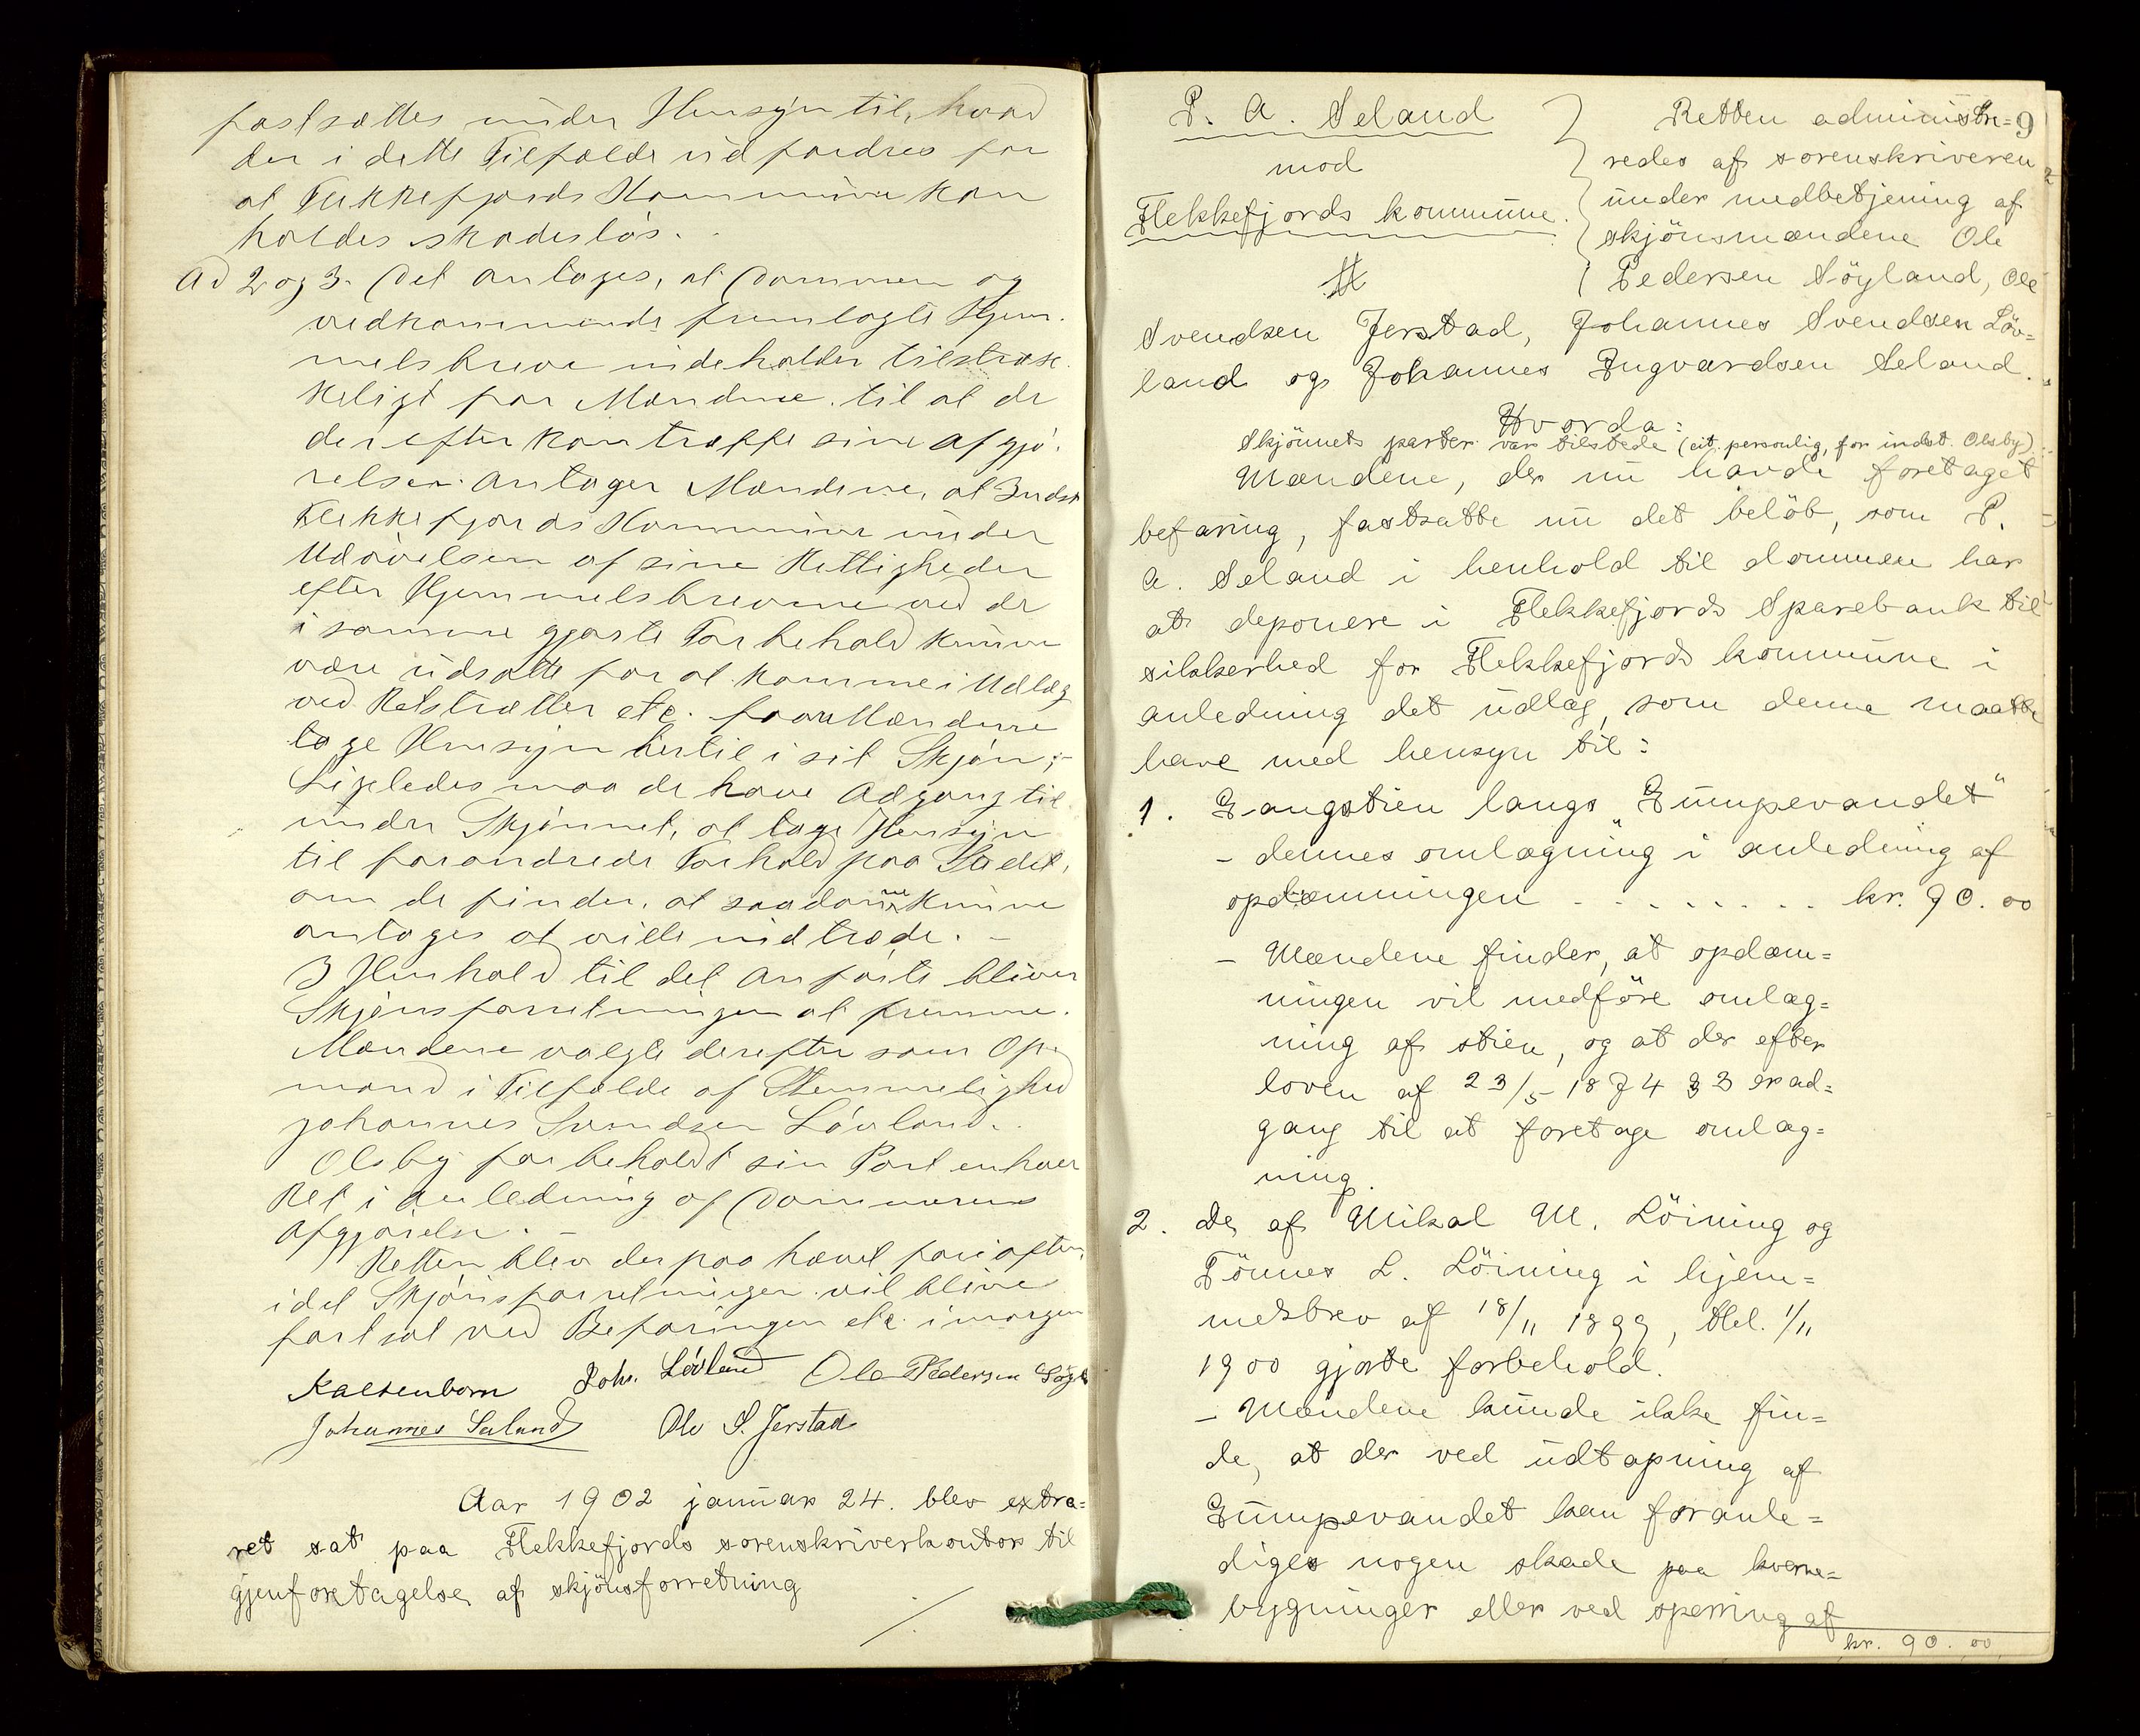 fastsættes under Hensyn til, hvad
der i dette Tilfælde udfordres for
at Flekkefjords Kommune kan
holdes skadesløs.
Ad 2 og 3. Det antages, at Dommen og
vedkommende fremlagte Hjem-
melsbreve indeholder tilstræk-
keligt for Mændene til at de
derefter kan træffe sine Afgjö-
relser. Antager Mændene, at Indst.
Flekkefjords Kommune under
Udövelsen af sine Rettigheder
efter Hjemmelsbrevene ved de
i samme gjorte Forbehold kunne
være udsatte for at komme i Udlæg
ved Retstrætter etc. faar Mændene
tage Hensyn hertil i sit Skjön;-
Ligeledes maa de have Adgang til
under Skjönnet, at tage Hensyn
til forandrede Forhold paa Stedet,
om de finder, at saadanne kunne
antages at ville indtræde. -
I Henhold til det anförte bliver
Skjönsforretningen at fremme.
Mændene valgte derefter som Op-
mand i Tilfælde af Stemmelighed
Johannes Svendsen Lövland.
Olsby forbeholdt sin Part enhver
Ret i Anledning af Dommerens
Afgjörelse. -
Retten blev derpaa hævet for iaften,
idet Skjönsforretningen vil blive
fortsat ved Befaringen etc. imorgen
Kaltenborn Johs. Lövland Ole Pedersen Söyl
Johannes Seland Ole S. Jerstad
Aar 1902 januar 24. blev extra-
ret sat paa Flekkefjords sorenskriverkontor til
gjenforetagelse af skjönsforretning
P. A. Seland
mod
Flekkefjords kommune.
Retten administre= 9
redes af sorenskriveren
under medbetjening af
skjönsmændene Ole
Pedersen Söyland, Ole
Svendsen Jerstad, Johannes Svendsen Löv=
land og Johannes Ingvardsen Seland.
Hvorda:
Skjönnets parter var tilstede (cit. personlig, for indst. Olsby)
Mændene, der nu havde foretaget
befaring, fastsatte nu det belöb, som P.
A. Seland i henhold til dommen har
at deponere i Flekkefjords Sparebank til
sikkerhed for Flekkefjords kommune i
anledning det udlæg, som denne maatte
have med hensyn til:
1. Gangstien langs "Gumpevandet"
- dennes omlægning i anledning af
opdæmningen - - - - - - - - kr. 90.00
- Mændene finder, at opdæm=
ningen vil medföre omlæg=
ning af stien, og at der efter
loven af 23/5 1874 § 3 er ad=
gang til at foretage omlæg=
ning.
2. De af Mikal M. Löining og
Tönnes L. Löining i hjem=
melsbrev af 18/11 1899, thl. 1/11
1900 gjorte forbehold.
- Mændene kunde ikke fin=
de, at der ved udtapning af
Gumpevandet kan foranle=
diges nogen skade paa kverne=
bygninger eller ved sperring af
kr. 90.00